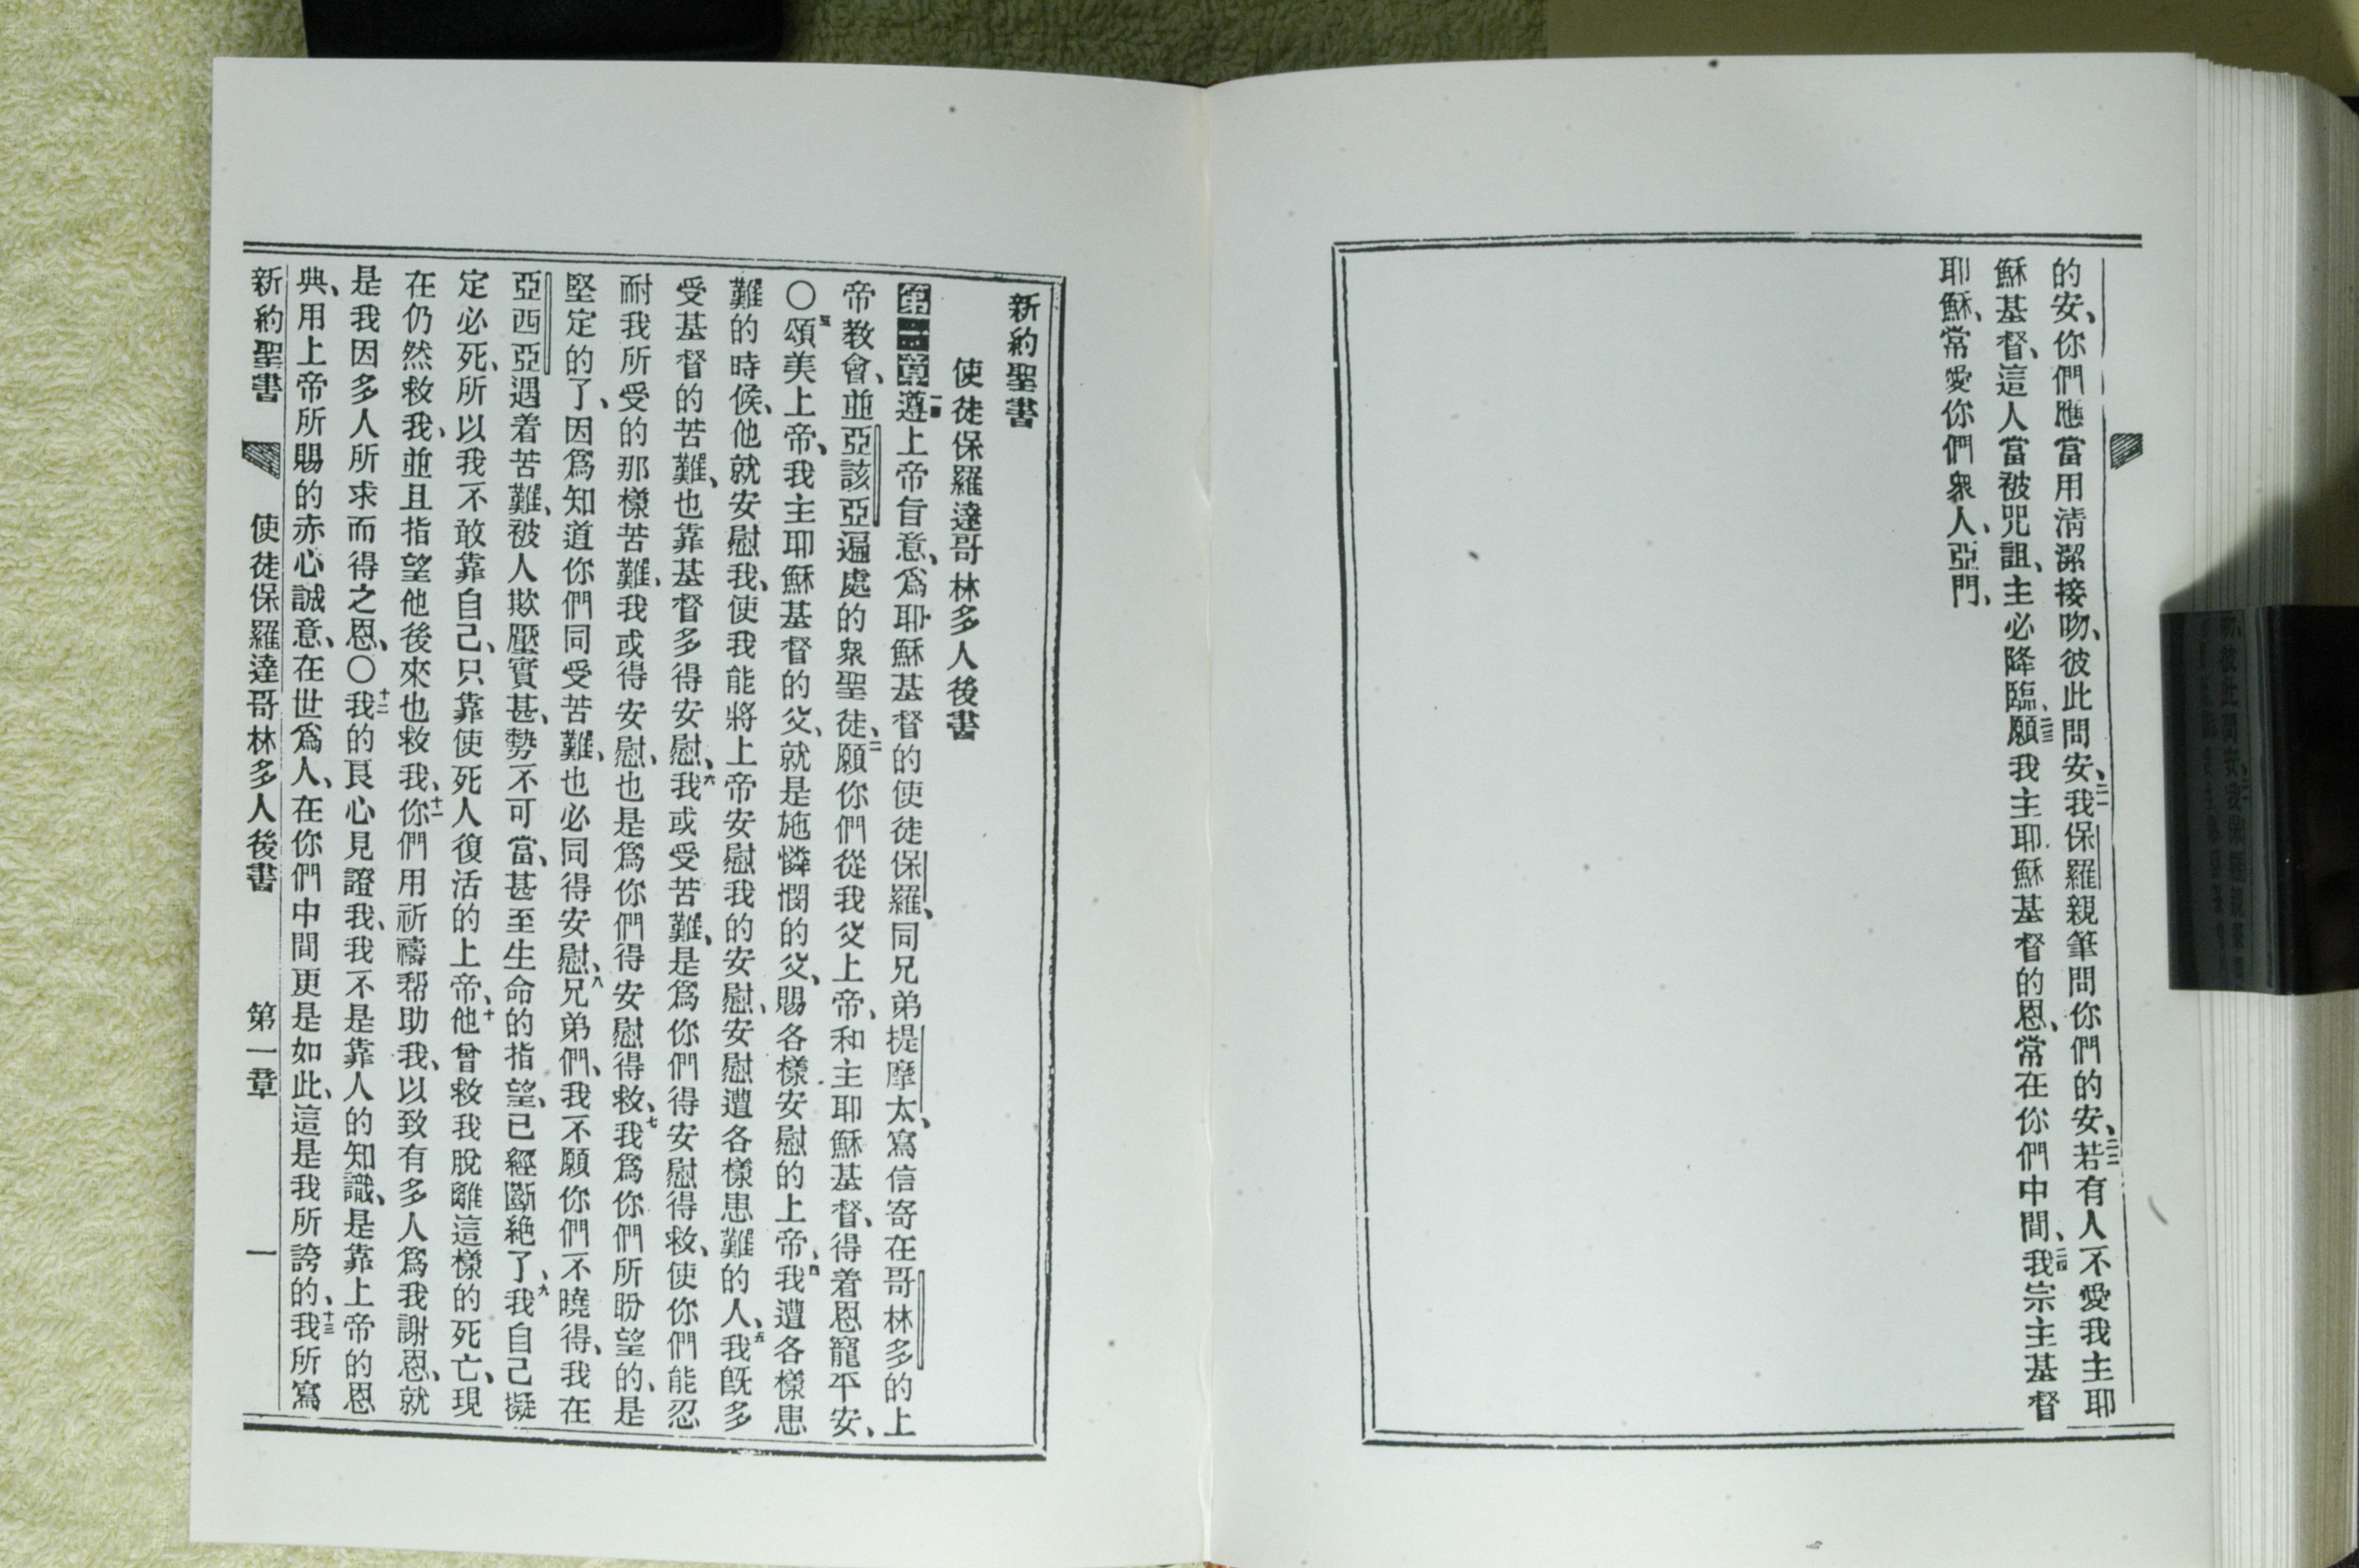 的安、你們應當用清潔接吻、彼此問安、二一我保羅親筆問你們的安、二二若有人不愛我主耶
穌基督、這人當被咒詛、主必降臨、二三願我主耶穌基督的恩、常在你們中間、二四我宗主基督
耶穌、常愛你們衆人、亞門、
新約聖書
使徒保羅達哥林多人後書
第一章一遵上帝旨意、爲耶穌基督的使徒保羅、同兄弟提摩太、寫信寄在哥林多的上
帝教會、並亞該亞遍處的衆聖徒、二願你們從我父上帝、和主耶穌基督、得着恩寵平安、
〇三頌美上帝、我主耶穌基督的父、就是施憐憫的父、賜各樣安慰的上帝、四我遭各樣患
難的時候、他就安慰我、使我能將上帝安慰我的安慰、安慰遭各樣患難的人、五我旣多
受基督的苦難、也靠基督多得安慰、六我或受苦難、是爲你們得安慰得救、使你們能忍
耐我所受的那樣苦難、我或得安慰、也是爲你們得安慰得救、七我爲你們所盼望的、是
堅定的了、因爲知道你們同受苦難、也必同得安慰、八兄弟們、我不願你們不曉得、我在
亞西亞遇着苦難、被人欺壓實甚、勢不可當、甚至生命的指望、已經斷絕了、九我自己擬
定必死、所以我不敢靠自己、只靠使死人復活的上帝、十他曾救我脫離這樣的死亡、現
在仍然救我、並且指望他後來也救我、十一你們用祈禱帮助我、以致有多人爲我謝恩、就
是我因多人所求而得之恩、〇十二我的良心見證我、我不是靠人的知識、是靠上帝的恩
典、用上帝所賜的赤心誠意、在世爲人、在你們中間更是如此、這是我所誇的、十三我所寫
新約聖書 使徒保羅達哥林多人後書 第一章 一